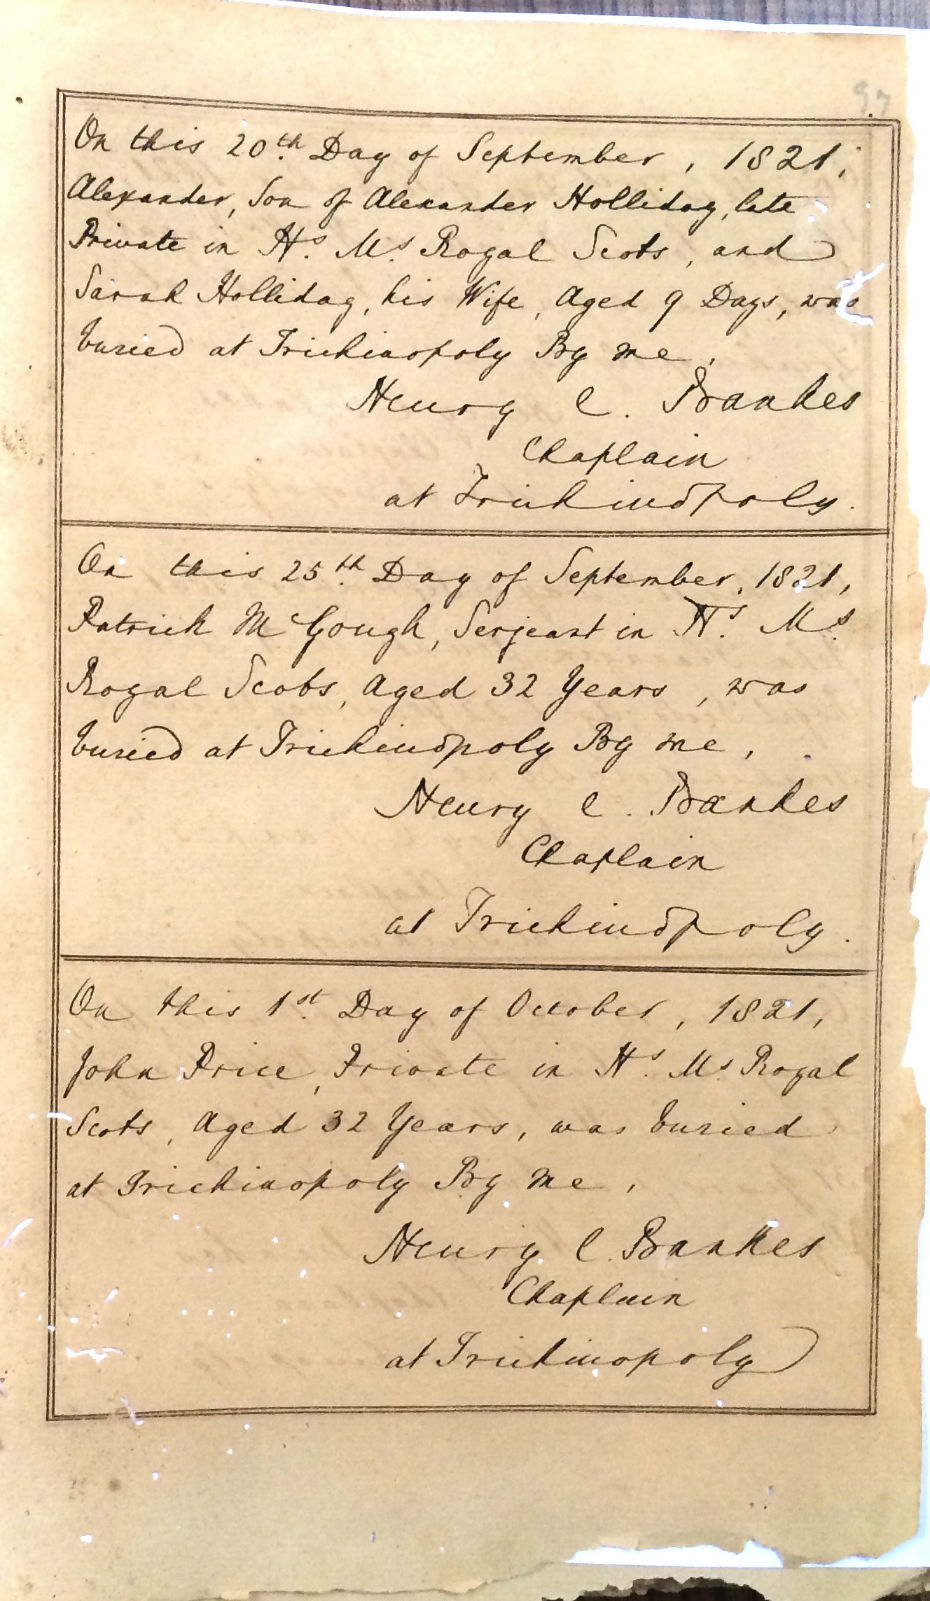 97
On this 20th. Day of September, 1821,
Alexander, Son of Alexander Holliday, late
Private in Hs. Ms. Royal Scots, and
Sarah Holliday, his Wife, Aged 9 Days, was
buried at Trichinopoly By me,
Henry C. Bankes
Chaplain
at Trichinopoly.
On this 25th. Day of September, 1821,
Patrick McGough, Serjeant in Hs. Ms.
Royal Scots, Aged 32 Years, was
buried at Trichinopoly By me,
Henry C. Bankes
Chaplain
at Trichinopoly.
On this 1st. Day of October, 1821,
John Price, Private in Hs. Ms. Royal
Scots, Aged 32 Years, was buried
at Trichinopoly By me,
Henry C. Bankes
Chaplain
at Trichinopoly